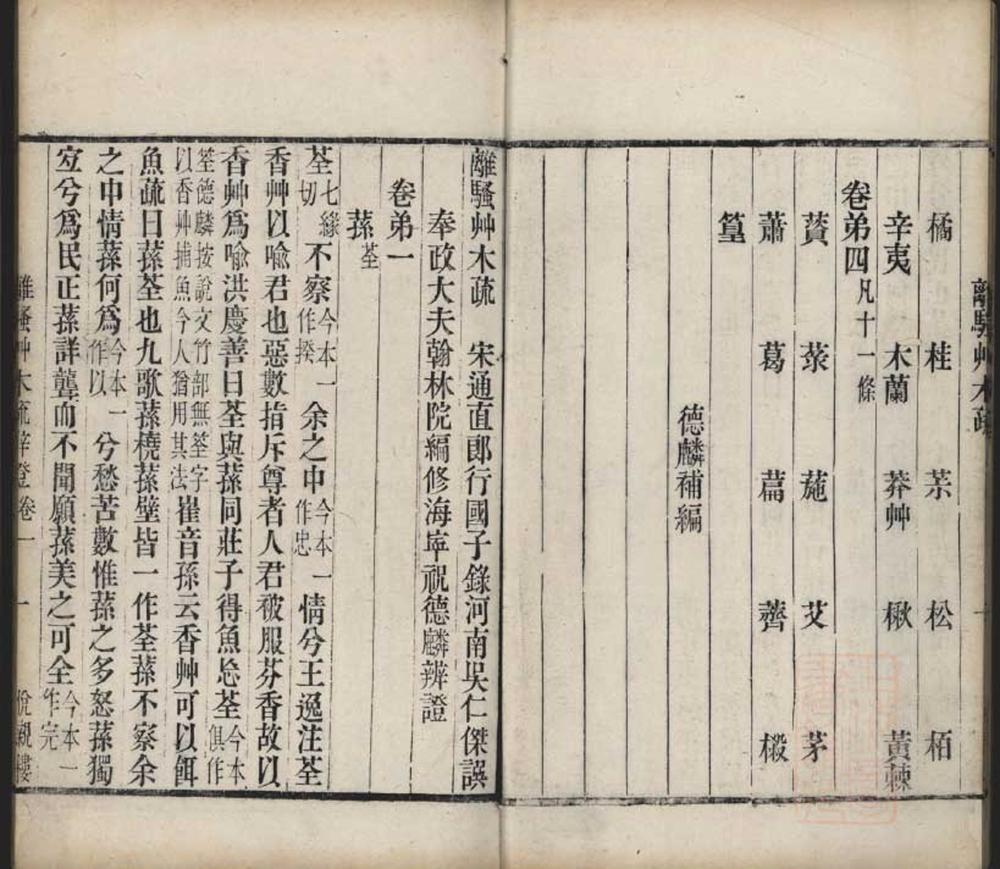 離騷艸木疏
橘　桂　荼　松　栢
辛夷　木蘭　莽艸　楸　黃棘
卷弟四凡十一條
薋　菉　葹　艾　茅
蕭　葛　萹　薺　樧
篁
德麟補編
離騷艸木疏　宋通直郎行國子錄河南吳仁傑譔
奉政大夫翰林院編修海寧祝德麟辨證
卷弟一
蓀荃
荃七緣切不察今本一作揆余之中今本一作忠情兮王逸注荃
香艸以喻君也惡數指斥尊者人君被服芬香故以
香艸爲喻洪慶善曰荃與蓀同莊子得魚忩荃今本俱作
筌德麟按說文竹部無筌字以香艸捕魚今人猶用其法崔音孫云香艸可以餌
魚疏曰蓀荃也九歌蓀橈蓀壁皆一作荃蓀不察余
之中情蓀何爲今本一作以兮愁苦數惟蓀之多怒蓀獨
宐兮爲民正蓀詳聾而不聞願蓀美之可全今本一作完
離騷艸木疏辛證卷一　一　悅親樓